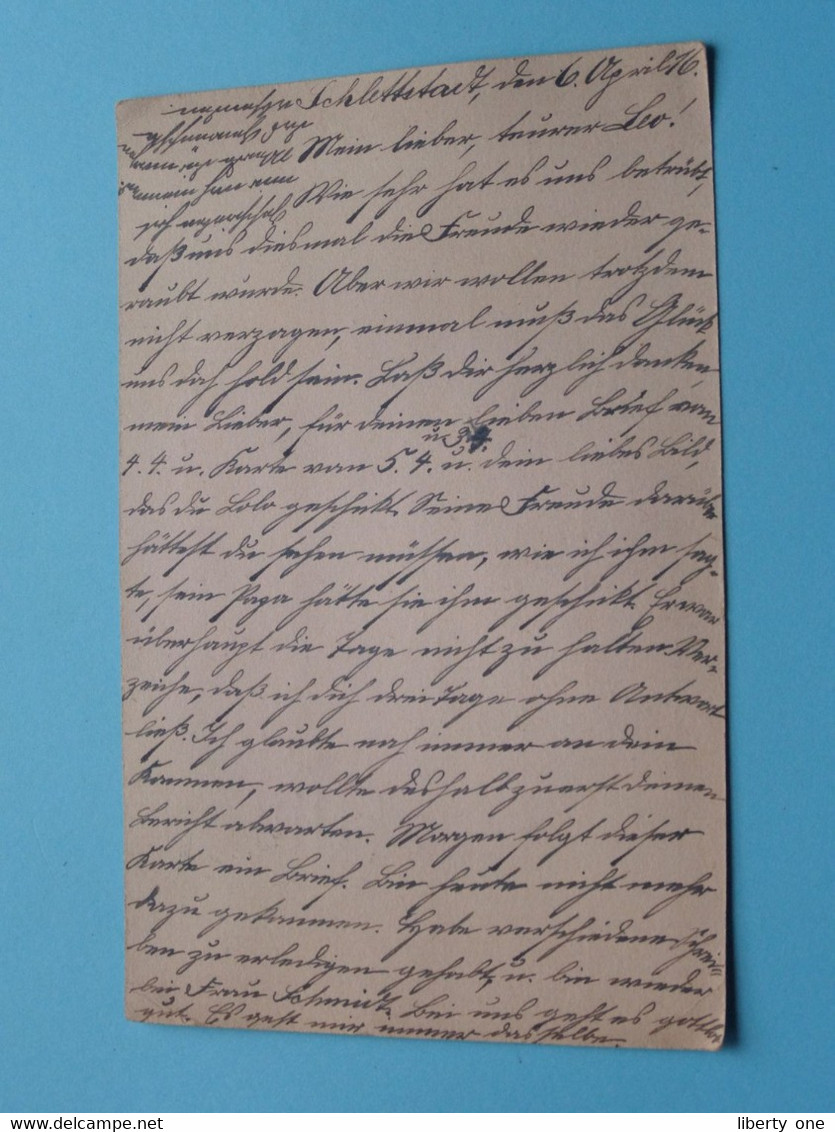 Schlettstadt, den 6. April 16.
Mein lieber, teurer Leo!
Wie sehr hat es uns betrübt,
daß uns diesmal die Freude wieder ge-
raubt wurde. Aber wir wollen trotzdem
nicht verzagen, einmal muß das Glück
uns doch hold sein. Laß dir herzlich danken,
mein Lieber, für deinen lieben Brief von
4. 4. u. Karte von 5. 4. u. dein liebes Bild,
das du Lolo geschickt. Seine Freude darüber
hättest du sehen müssen, wie ich ihm sag-
te, sein Papa hätte sie ihm geschickt. Er war
überhaupt die Tage nicht zu halten. Ver-
zeihe, daß ich dich drei Tage ohne Antwort
ließ. Ich glaubte noch immer an dein
Kommen, wollte deshalb zuerst deinen
Bericht abwarten. Morgen folgt dieser
Karte ein Brief. Bin heute nicht mehr
dazu gekommen. Habe verschiedene Schrei-
ben zu erledigen gehabt, u. bin wieder
bei Frau Schmidt. Bei uns geht es gottlob
gut. Es geht mir immer dasselbe.
liberty one